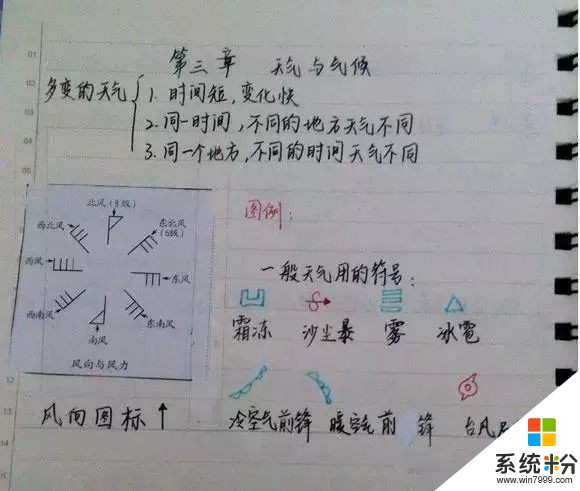 第三章 天气与气候
多变的天气
1. 时间短,变化快
2. 同一时间,不同的地方天气不同
3. 同一个地方,不同的时间天气不同
北风(8级)
西北风
东北风
(6级)
西风
东风
西南风
东南风
南风
风向与风力
风向图标↑
图例:
一般天气用的符号:
霜冻 沙尘暴 雾 冰雹
冷空气前锋 暖空气前锋 台风
系统粉
www.win7999.com